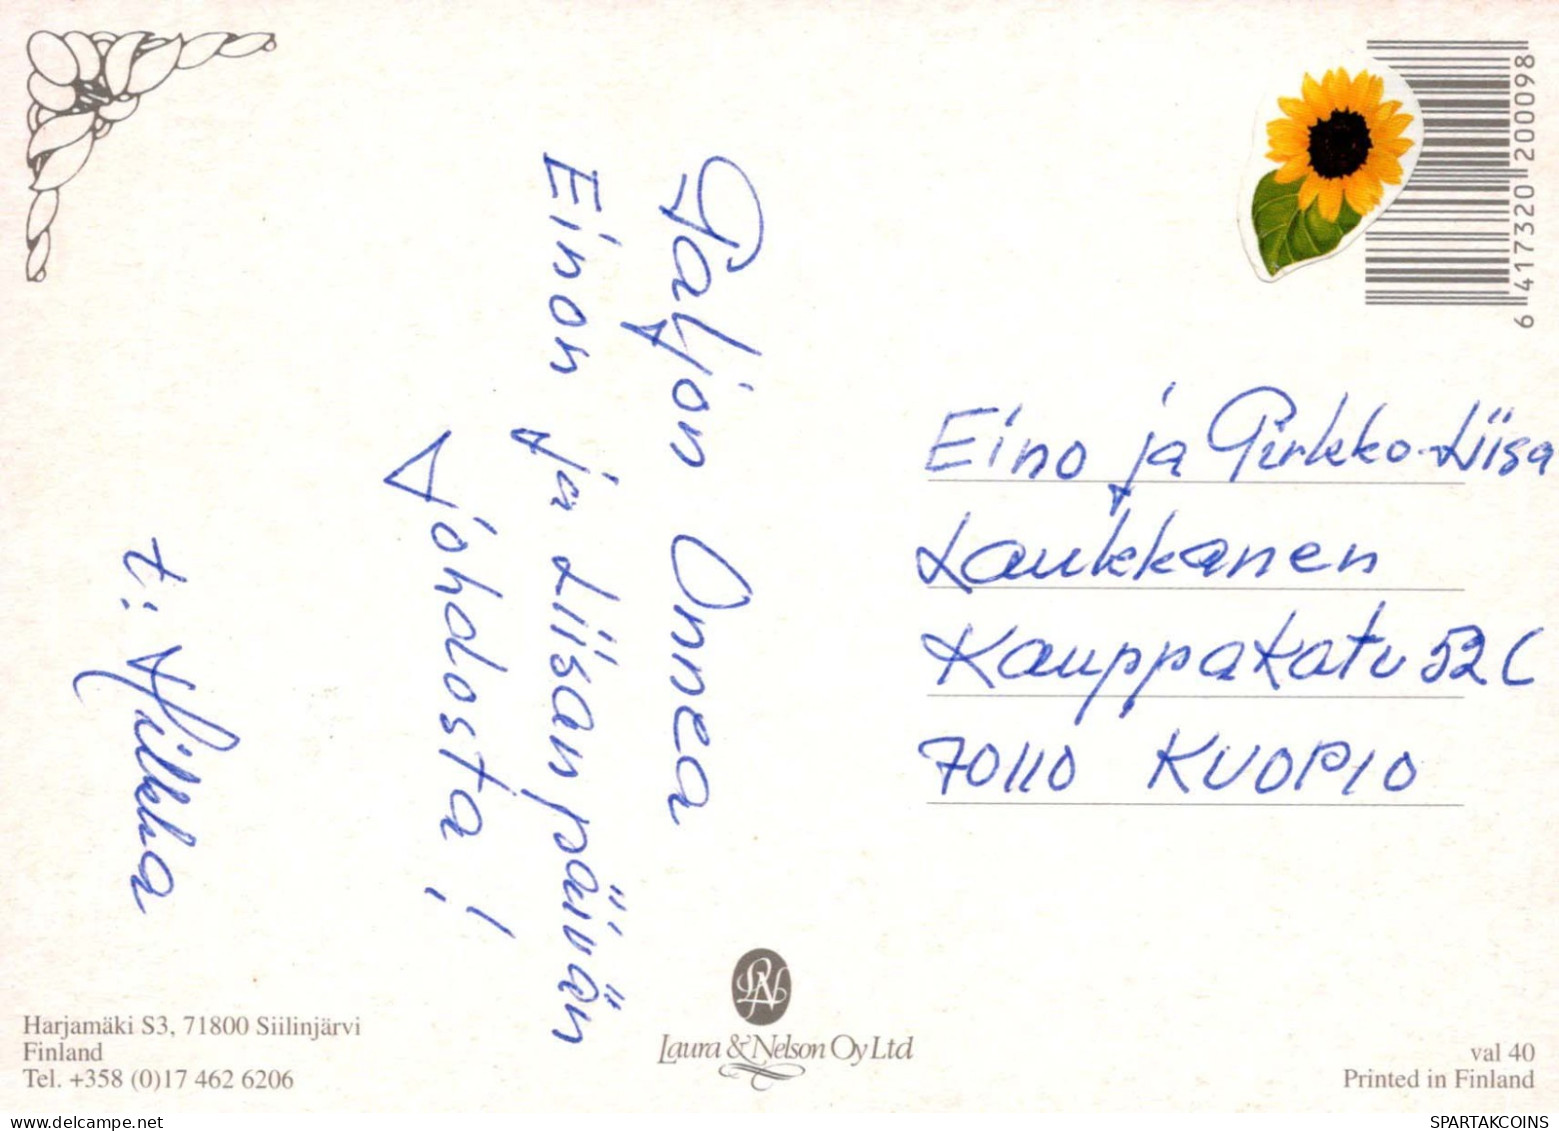 Paljon Onnea
Einon ja Liisan päivän
johdosta!
t: Hilkka
Eino ja Pirkko-Liisa
Laukkanen
Kauppakatu 52 C
70110 KUOPIO
6 417320 200098
Harjamäki S3, 71800 Siilinjärvi
Finland
Tel. +358 (0)17 462 6206
LN
Laura & Nelson Oy Ltd
val 40
Printed in Finland
delcampe.net
SPARTAKCOINS